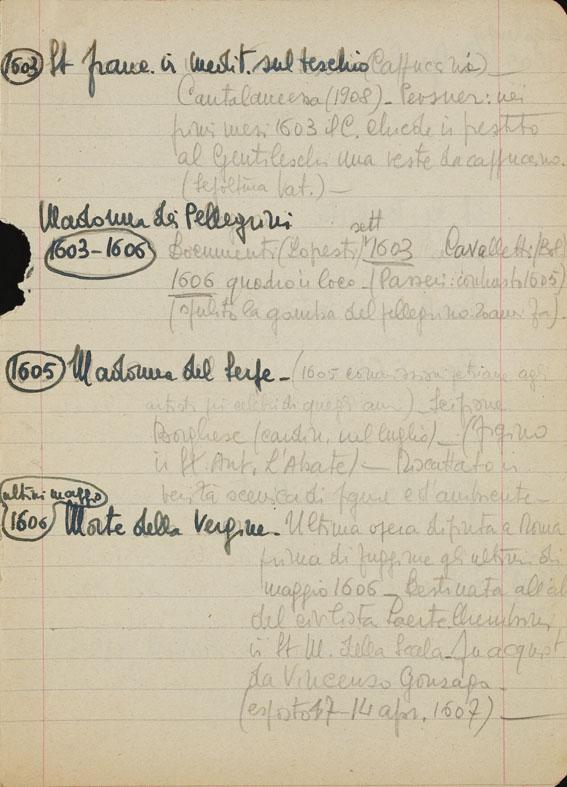 1603 St franc. in medit. sul teschio (Cappuccini) —
Cantalamessa (1908) - Pevsner: nei
primi mesi 1603 il C. chiede in prestito
al Gentileschi una veste da cappuccino.
(Sepoltina Vat.) —
Madonna dei Pellegrini
sett
1603-1606 Documenti (Lopresti) 1603 Cavalletti
1606 quadro in loco - (Passeri: contrasto 1605)
(pulito la gamba del pellegrino 20 anni fa).
1605 Madonna del Serpe - (1605 commissioni
artisti più celebri di quegli anni) - Scipione
Borghese (cardin. nel luglio) -
in St. Ant. L'Abate) —
verità scenica di figure e d'ambiente -
ultimi maggio
1606 Morte della Vergine - Ultima opera dipinta a Roma
prima di fuggirne gli ultimi di
maggio 1606 - Destinata
del civlista Laerte Cherubini
in St M. della Scala - fu acquist
da Vincenzo Gonzaga -
(esposto 7-14 apr. 1607) —